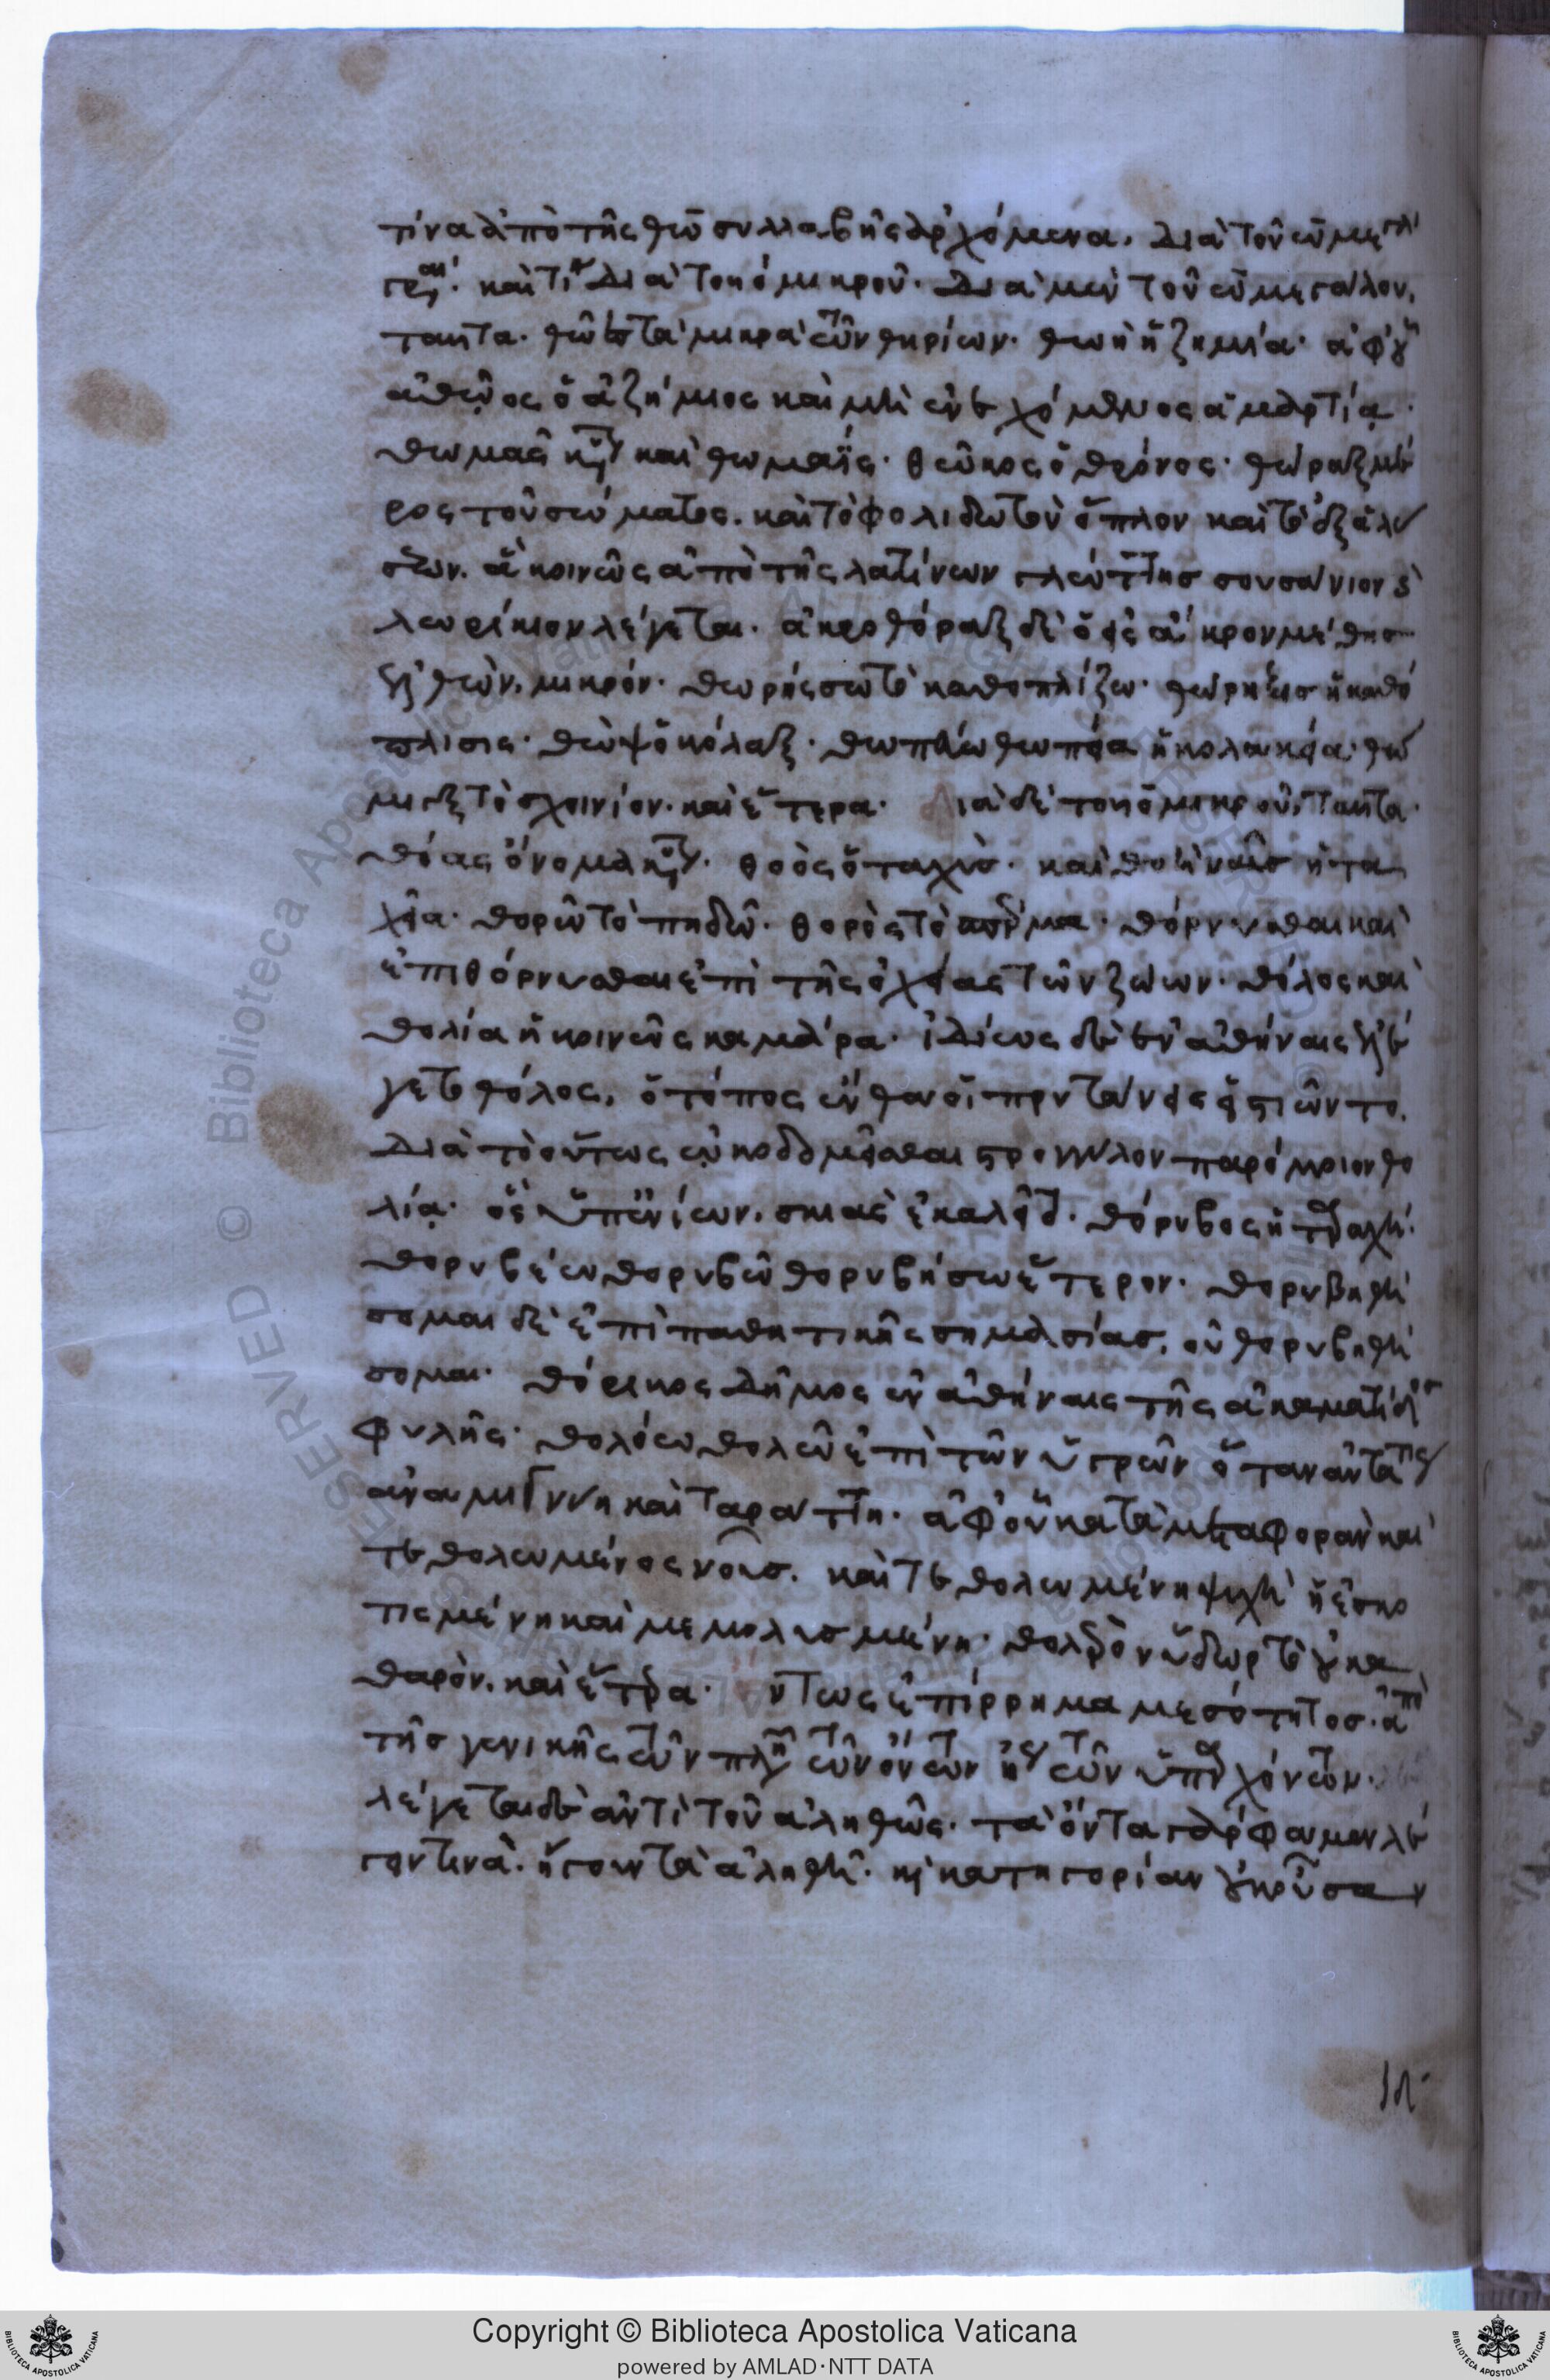 τίνα ἀπὸ τῆς θω συλλαβῆς ἀρχόμενα. διὰ τοῦ ω μεγάλου
γράφεται. καὶ τίνα διὰ τοῦ ο μικροῦ. διὰ μὲν τοῦ ω μεγάλου,
ταῦτα. θῶες τὰ μικρὰ τῶν θηρίων. θωὴ ἡ ζημία. ἀφ' οὗ
ἀθῷος ὁ ἀζήμιος καὶ μὴ ἐνεχόμενος ἁμαρτίᾳ.
θωμᾶς κύριον καὶ θωμαΐς. θῶκος ὁ θρόνος. θώραξ μέ
ρος τοῦ σώματος. καὶ τὸ φολιδωτὸν ὅπλον καὶ τὸ ἐξ ἁλύ
σεων. ἃ κοινῶς ἀπὸ τῆς λατίνων γλώττης σουσάνιον καὶ
λωρίκιον λέγεται. ἀκροθόραξ δὲ ὁ εἰς ἄκρον μέθης
ἐλθὼν. μικρόν. θωρήσσω τὸ καθοπλίζω. θώρηξις ἡ καθό
πλισις. θὼψ ὁ κόλαξ. θωπεύω θωπεία ἡ κολακεία. θώ
μιγξ τὸ σχοινίον. καὶ ἕτερα. Διὰ δὲ τοῦ ο μικροῦ, ταῦτα.
θόας ὄνομα κύριον. θοὸς ὁ ταχύς. καὶ θοὴ ναῦς ἡ τα
χεῖα. θορῶ τὸ πηδῶ. θορὸς τὸ σπέρμα. θόρνυσθαι καὶ
ἐπιθόρνυσθαι ἐπὶ τῆς ὀχείας τῶν ζώων. θόλος καὶ
θολία ἡ κοινῶς καμάρα. ἰδίως δὲ ἐν ἀθήναις ἐλέ
γετο θόλος, ὁ τόπος ἔνθα οἱ πρυτάνεις εἱστιῶντο.
διὰ τὸ οὕτως ᾠκοδομεῖσθαι στρογγύλον παρόμοιον θο
λίᾳ. ὃς ὑπ' ἐνίων. σκιὰς ἐκαλεῖτο. θόρυβος ἡ ταραχή.
θορυβέω θορυβῶ θορυβήσω ἕτερον. θορυβηθή
σομαι δὲ ἐπὶ παθητικῆς σημασίας, οὐ θορυβηθή
σομαι. θόρικος δῆμος ἐν ἀθήναις τῆς ἀκαμαντίδος
φυλῆς. θολόω θολῶ ἐπὶ τῶν ὑγρῶν ὅταν αὐτά τις
ἀναμιγνύη καὶ ταράττη. ἀφ' οὗ κατὰ μεταφορὰν καὶ
τεθολωμένος νοῦς. καὶ τεθολωμένη ψυχὴ ἡ ἐσκο
τισμένη καὶ μεμολυσμένη. θολερὸν ὕδωρ τὸ οὐ κα
θαρόν. καὶ ἕτερα. ντως ἐπίρρημα μεσότητος. ἀπὸ
τῆς γενικῆς τῶν πληθυντικῶν τῶν ὄντων ἤγουν τῶν ὑπαρχόντων.
λέγεται δὲ ἀντὶ τοῦ ἀληθῶς. τὰ ὄντα γάρ φαμεν λέ
γοντινὰ. ἤγουν τὰ ἀληθῆ. καὶ κατηγορίαν οὐκ οὖσαν